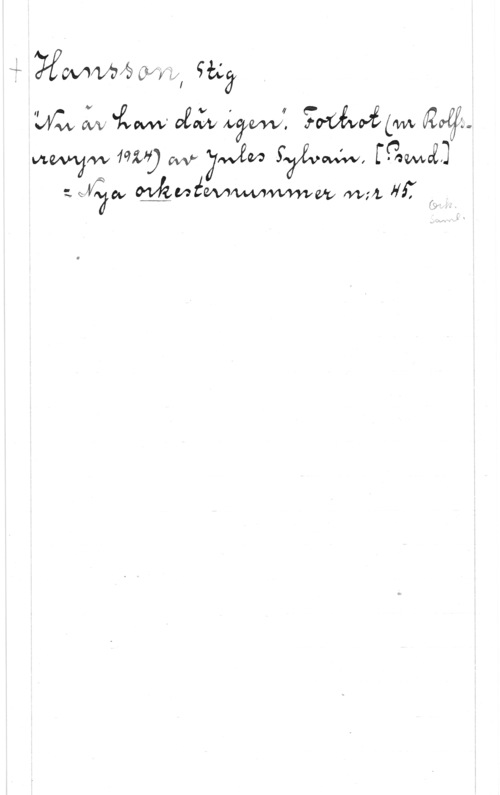 + Hansson, Stig
"Nu är han där igen". Foxtrot (ur Rolfs-
revyn 1924) av Jules Sylvain. [Pseud.]
= Nya orkesternummer n:r 45.
Ork.
Saml.